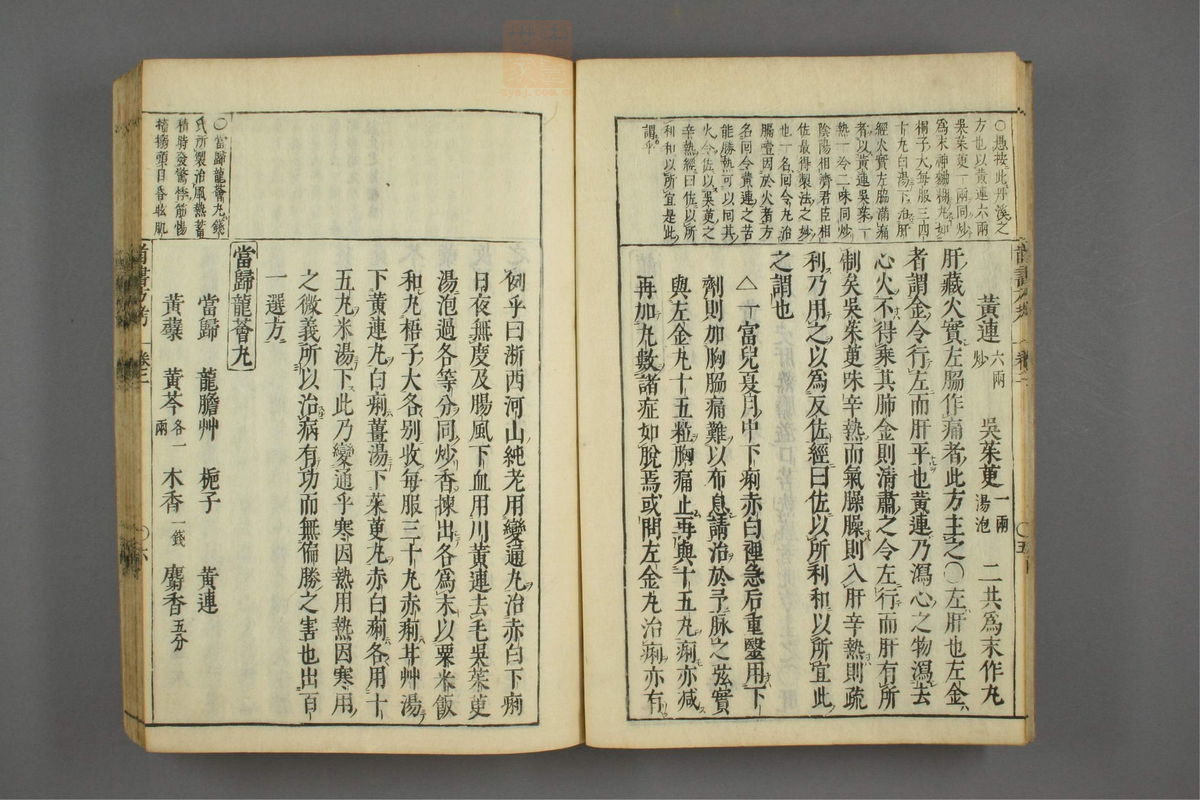 ○愚按此丹溪之
方也以黃連六兩
吳茱萸一兩同炒
為末神麯糊丸如
梧子大每服三四
十丸白湯下治肝
經火實左脇滿痛
者以黃連吳茱一
熱一冷二味同炒
陰陽相濟君臣相
佐最得製法之妙
也一名回令丸治
膈壹因於火者方
名回令黃連之苦
能勝熱可以回其
火令佐以吳萸之
辛熱經曰佐以所
利和以所宜是此
謂乎
黃連六兩炒 吳茱萸一兩湯泡 二共為末作丸
肝藏火實左脇作痛者此方主之○左肝也左金
者謂金令行左而肝平也黃連乃瀉心之物瀉去
心火不得乘其肺金則清肅之令左行而肝有所
制矣吳茱萸味辛熱而氣臊臊則入肝辛熱則疏
利乃用之以為反佐經曰佐以所利和以所宜此
之謂也
△一富兒夏月中下痢赤白裡急后重醫用下
劑則加胸脇痛難以布息請治於予脉之弦實
與左金丸十五粒胸痛止再與十五丸痢亦減
再加丸數諸症如脫焉或問左金丸治痢亦有
例乎曰浙西河山純老用變通丸治赤白下痢
日夜無度及腸風下血用川黃連去毛吳茱萸
湯泡過各等分同炒香揀出各為末以粟米飯
和丸梧子大各別收每服三十丸赤痢甘艸湯
下黃連丸白痢薑湯下茱萸丸赤白痢各用十
五丸米湯下此乃變通乎寒因熱用熱因寒用
之微義所以治病有功而無偏勝之害也出百
一選方
○當歸龍薈丸錢
氏所製治風熱蓄
積時發驚悸筋惕
搐搦頭目昏眩肌
當歸龍薈丸
當歸 龍膽艸 梔子 黃連
黃蘗 黃芩各一兩 木香一錢 麝香五分
卷三
○六